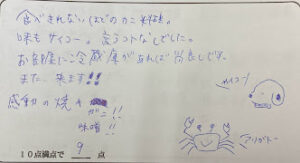 食べきれないほどのカニ料理。
味もサイコー。言うコトなしでした。
お部屋に冷蔵庫があれば尚良しです。
また、来ます!!
感動の焼きガニ!!
味噌!!
サイコー!
アリガトー
10点満点で 9 点